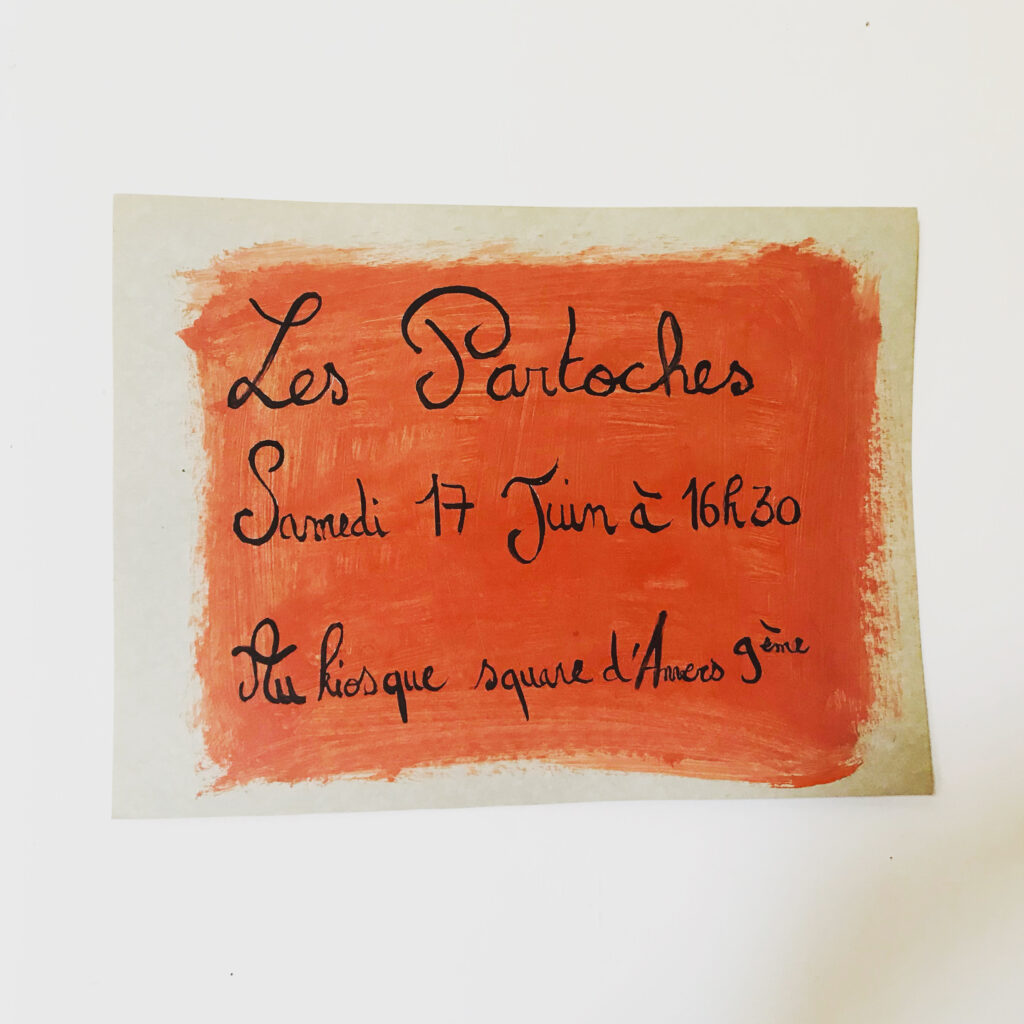 Les Partoches
Samedi 17 Juin à 16h30
Au kiosque square d'Anvers 9ème